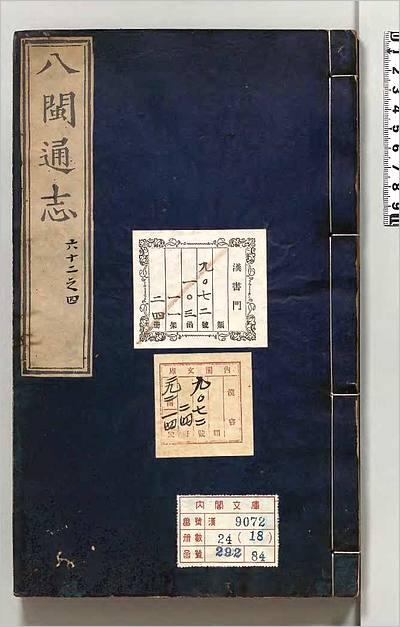 八閩通志
六十二之四
漢書門
類
九〇七二號
一〇三函
一一架
二四冊
內閣文庫
漢書
九〇七二
二四
內閣文庫
番號 漢 9072
冊數 24(18)
函號 292 84
1 2 3 4 5 6 7 8 9